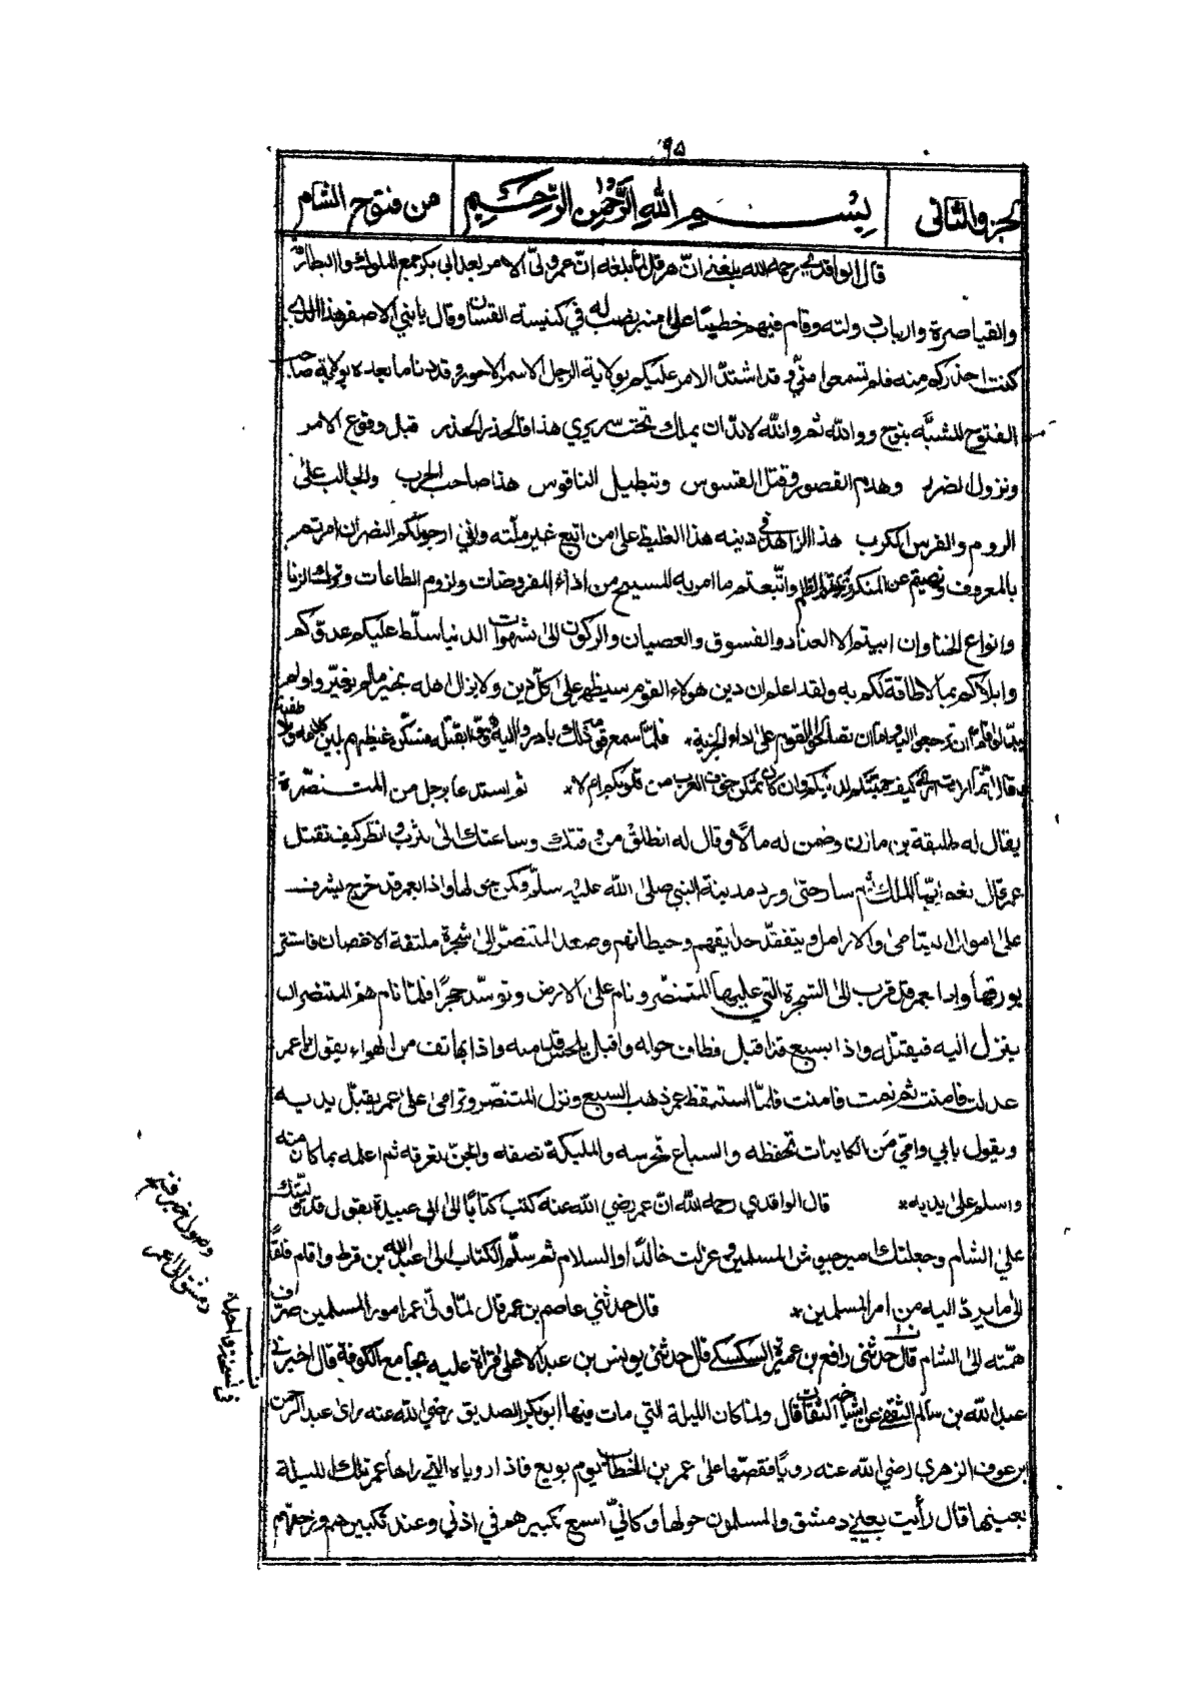 ٩٥
الجزء الثاني
بسم الله الرحمن الرحيم
من فتوح الشام
قال الواقدي رحمه الله بلغني ان هرقل لما بلغه انّ عمر ولّي الامر بعد ابي بكر جمع الملوك والبطارقة
والقياصرة وارباب دولته وقام فيهم خطيبًا على منبر نصب له في كنيسة القسان وقال يا بني الاصفر هذا الذي
كنت احذركم منه فلم تسمعوا منّي وقد اشتدّ الامر عليكم بولاية الرجل الاسمر الاحور وقد دنا ما بعده بولاية صاحب
الفتوح المشبّه بنوح ووالله ثم والله لا بدّ ان يملك تحت سريري هذا فالحذر الحذر قبل وقوع الامر
ونزول الضر وهدم القصور وقتل القسوس وتبطيل الناقوس هذا صاحب الحرب والجالب على
الروم والفرس الكرب هذا الزاهد في دينه هذا الغليظ على من اتبع غير ملّته واني ارجو لكم النصر ان امرتم
بالمعروف ونهيتم عن المنكر وتركتم الظلم واتّبعتم ما امر به المسيح من اداء المفروضات ولزوم الطاعات وترك الزنا
وانواع الخنا وان ابيتم الا العناد والفسوق والعصيان والركون الى شهوات الدنيا سلّط عليكم عدوكم
وابلاكم بما لا طاقة لكم به ولقد اعلم ان دين هولاء القوم سيظهر على كلّ دين ولا يزال اهله بخير ما لم يغيّروا ولم
يبدّلوا فاما ان ترجعوا اليه واما ان نصالحوا القوم على اداء الجزية * فلمّا سمع قومه ذلك بادروا اليه وهمّوا بقتله فسكّن غيظهم بلين كلامه ولاطفهم
وقال انّما اردت ان ارى كيف حميتكم لدينكم وان كان تمكن خوف العرب من قلوبكم ام لا * ثم استدعا برجل من المتنصّرة
يقال له طليقة بن مازن وضمن له مالًا وقال له انطلق من وقتك وساعتك الى يثرب وانظر كيف تقتل
عمر قال نعم ايّها الملك ثم سار حتى ورد مدينة النبي صلى الله عليه وسلّم وكمن حولها واذا بعمر قد خرج يشرف
على اموال اليتامى والارامل ويتفقّد حدايقهم وحيطانهم وصعد المتنصّر الى شجرة ملتفة الاغصان فاستتر
بورقها واذا عمر قد قرب الى الشجرة التي عليها المتنصّر ونام على الارض وتوسّد حجرًا فلمّا نام همّ المتنصّر ان
ينزل اليه فيقتله واذا بسبع قد اقبل فطاف حوله واقبل يلحس قدميه واذا بهاتف من الهواء يقول يا عمر
عدلت فامنت ثم نمت فامنت فلمّا استيقظ عمر ذهب السبع ونزل المتنصّر وترامى على عمر يقبّل يديه
ويقول بابي وامّي مَن الكاينات تحفظه والسباع تحرسه والمليكة تصفه والجنّ تعرفه ثم اعلمه بما كان منه
واسلم على يديه * قال الواقدي رحمه الله انّ عمر رضي الله عنه كتب كتابًا الى ابي عبيدة يقول قد ولّيتك
على الشام وجعلتك امير جيوش المسلمين وعزلت خالدًا والسلام ثم سلّم الكتاب الى عبد الله بن قرط واقام قلقًا
الى ما يرد اليه من امر المسلمين * قال حدثني عاصم بن عمر قال لمّا ولّي عمر امور المسلمين صرف
همّته الى الشام قال حدثني رافع بن عميرة السكسكي قال حدثني يونس بن عبد الاعلى قراة عليه بجامع الكوفة قال اخبرني
عبد الله بن سالم الثقفي عن اشياخه الثقات قال ولمّا كان الليلة التي مات فيها ابو بكر الصديق رضي الله عنه راى عبد الرحمن
بن عوف الزهري رضي الله عنه رويًا فقصّها على عمر بن الخطاب يوم بويع فاذا روياه التي راها عمر تلك الليلة
بعينها قال رأيت بعيني دمشق والمسلمون حولها وكانّي اسمع تكبيرهم في اذني وعند تكبيرهم وزحفهم
وصول خبر فتح
دمشق الى عمر